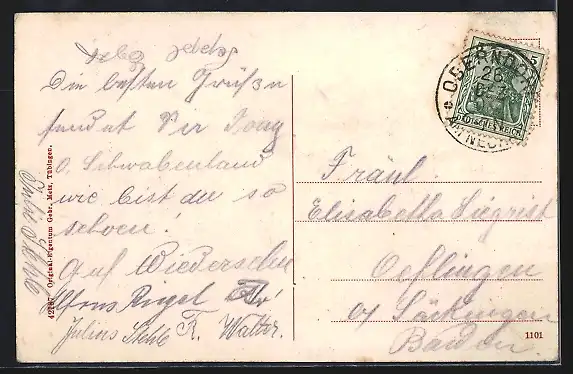 Die besten Grüße
sendet Dir
o, Schwabenland
wie bist du so
schoen!
Auf Wiedersehen
Alfons Riegel
Julius Stehle F. Walter.
42187 Original-Eigentum Gebr. Metz, Tübingen.
5
DEUTSCHES REICH
OBERNDORF
26
A. NECKAR
Fräul.
Elisabetha Siegrist
Oeflingen
o/ Säckingen
Baden.
1101